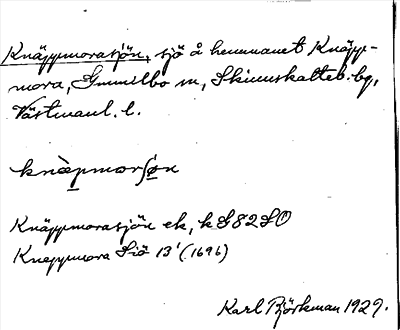 Knäppmorasjön, sjö å hemmanet Knäpp-
mora, Gunnilbo sn, Skinnskatteb. bg,
Västmanl. l.
knäpmorʃøn
Knäppmorasjön ek, k G82SO
Kneppmora Siö 13' (1696)
Karl Björkman 1929.